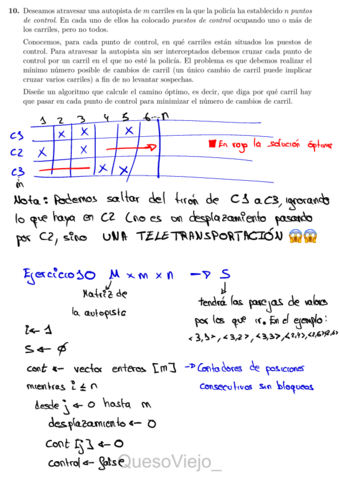 10. Deseamos atravesar una autopista de m carriles en la que la policía ha establecido n puntos
de control. En cada uno de ellos ha colocado puestos de control ocupando uno o más de
los carriles, pero no todos.
Conocemos, para cada punto de control, en qué carriles están situados los puestos de
control. Para atravesar la autopista sin ser interceptados debemos cruzar cada punto de
control por un carril en el que no esté la policía. El problema es que debemos realizar el
mínimo número posible de cambios de carril (un único cambio de carril puede implicar
cruzar varios carriles) a fin de no levantar sospechas.
Diseñe un algoritmo que calcule el camino óptimo, es decir, que diga por qué carril hay
que pasar en cada punto de control para minimizar el número de cambios de carril.
1 2 3 4 5 6...n
C1 X X X
C2 X X
C3 X X
m
En rojo la solución óptima
Nota: Podemos saltar del tirón de C1 a C3, ignorando
lo que haya en C2 (no es un desplazamiento pasando
por C2, sino UNA TELETRANSPORTACIÓN 😱😱
Ejercicio10 M x m x n → S
Matriz de
la autopista
tendrá las parejas de valores
por las que ir. En el ejemplo:
<3,1>, <3,2>, <3,3>, <2,4>, <2,5>, <2,6>
i ← 1
S ← ∅
cont ← vector enteros [m] → Contadores de posiciones
consecutivas sin bloqueos
mientras i ≤ n
desde j ← 0 hasta m
desplazamiento ← 0
cont [j] ← 0
control ← false
QuesoViejo_